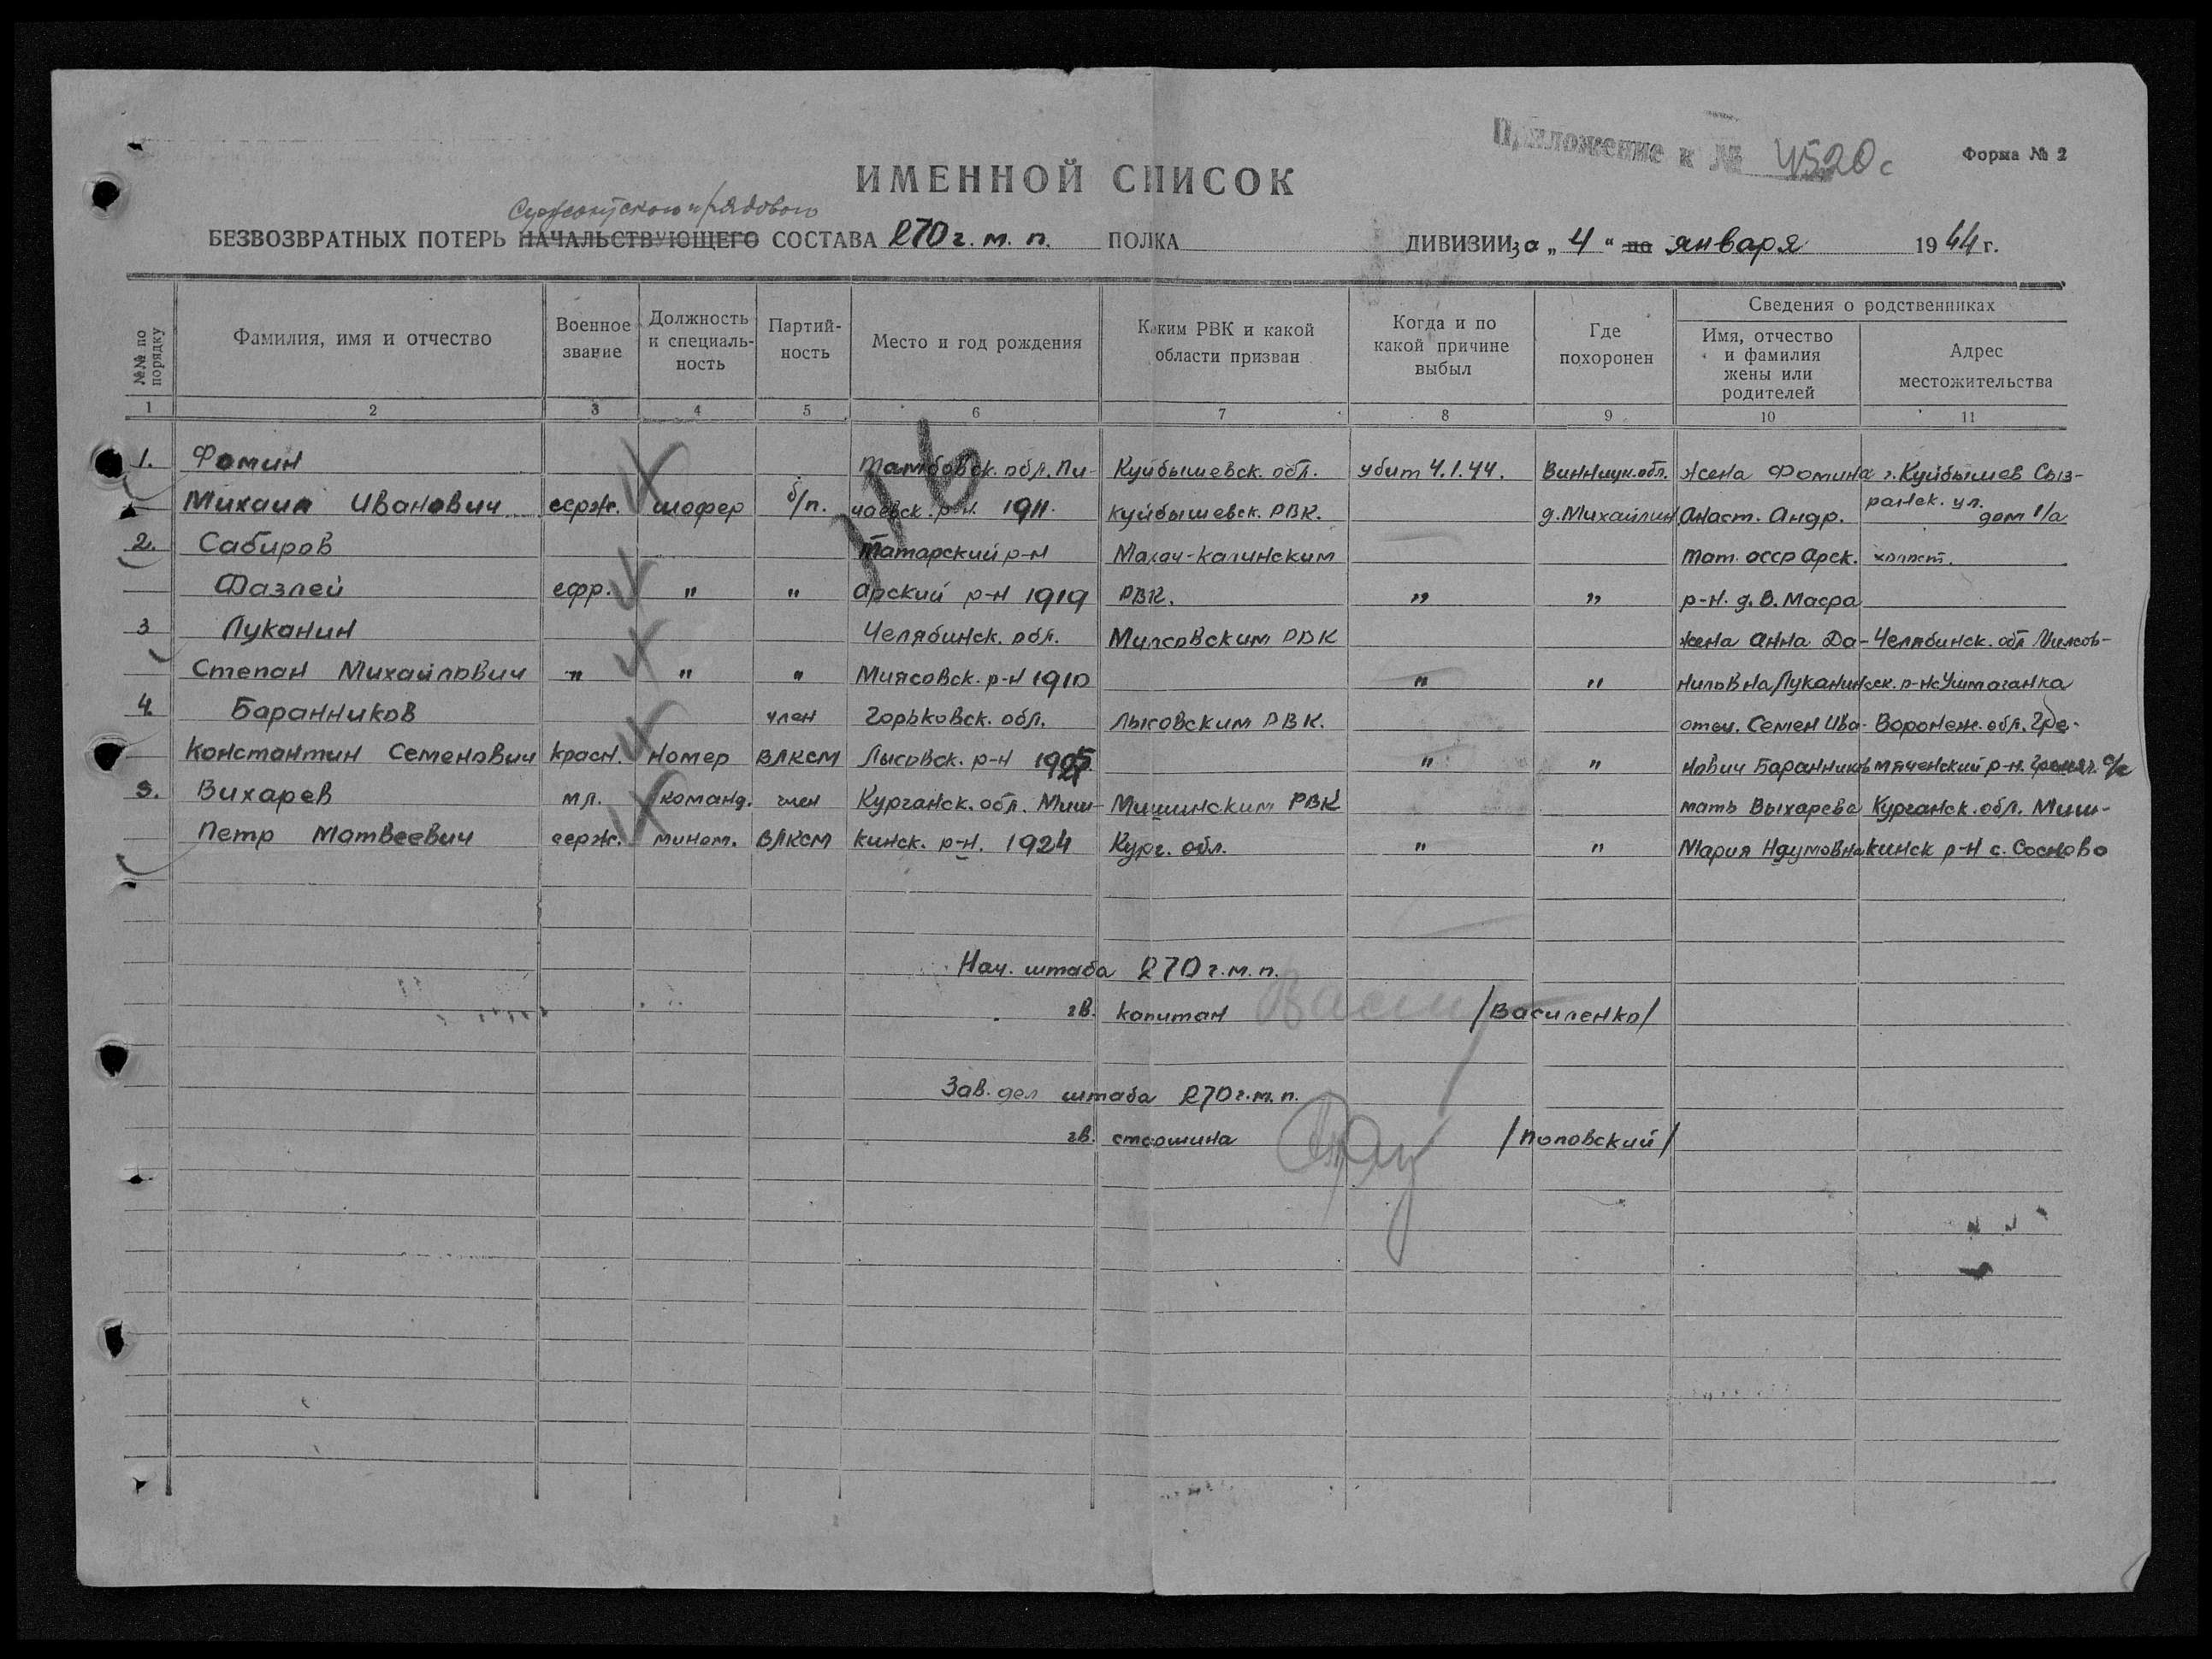 Приложение к № 4520с
Форма № 2
ИМЕННОЙ СПИСОК
Сержантского и рядового
БЕЗВОЗВРАТНЫХ ПОТЕРЬ НАЧАЛЬСТВУЮЩЕГО СОСТАВА 270 г. м. п. ПОЛКА ДИВИЗИИ за „4“ по января 1944 г.
№№ по порядку
Фамилия, имя и отчество
Военное звание
Должность и специаль-ность
Партий-ность
Место и год рождения
Каким РВК и какой области призван
Когда и по какой причине выбыл
Где похоронен
Сведения о родственниках
Имя, отчество и фамилия жены или родителей
Адрес местожительства
1 2 3 4 5 6 7 8 9 10 11
116
1. Фомин Тамбовск. обл. Пи- Куйбышевск. обл. убит 4.1.44. Винницк. обл. жена Фомина г. Куйбышев Сыз-
Михаил Иванович серж. шофер б/п. чаевск. р-н. 1911. Куйбышевск. РВК. д. Михайлин Анаст. Андр. ранск. ул. дом 1/а
2. Сабиров Татарский р-н Махач-калинским Тат. АССР Арск. холост.
Фазлей ефр. " " Арский р-н 1919 РВК. " " р-н. д. В. Масра
3 Луканин Челябинск. обл. Миясовским РВК жена Анна Да- Челябинск. обл Миясов-
Степан Михайлович " " " Миясовск. р-н 1910 " " ниловна Луканин ск. р-н с Уштаганка
4. Баранников член Горьковск. обл. Лысовским РВК. отец. Семен Ива- Воронеж. обл. Гре-
Константин Семенович красн. номер ВЛКСМ Лысовск. р-н 1925 " " нович Баранников мяченский р-н. с/с
5. Вихарев мл. команд. член Курганск. обл. Миш- Мишинским РВК мать Выхарева Курганск. обл. Миш-
Петр Матвеевич серж. мином. ВЛКСМ кинск. р-н. 1924 Кург. обл. " " Мария Наумовна кинск р-н с. Сосново
Нач. штаба 270 г. м. п.
гв. капитан /Василенко/
Зав. дел штаба 270 г. м. п.
гв. старшина /Поповский/